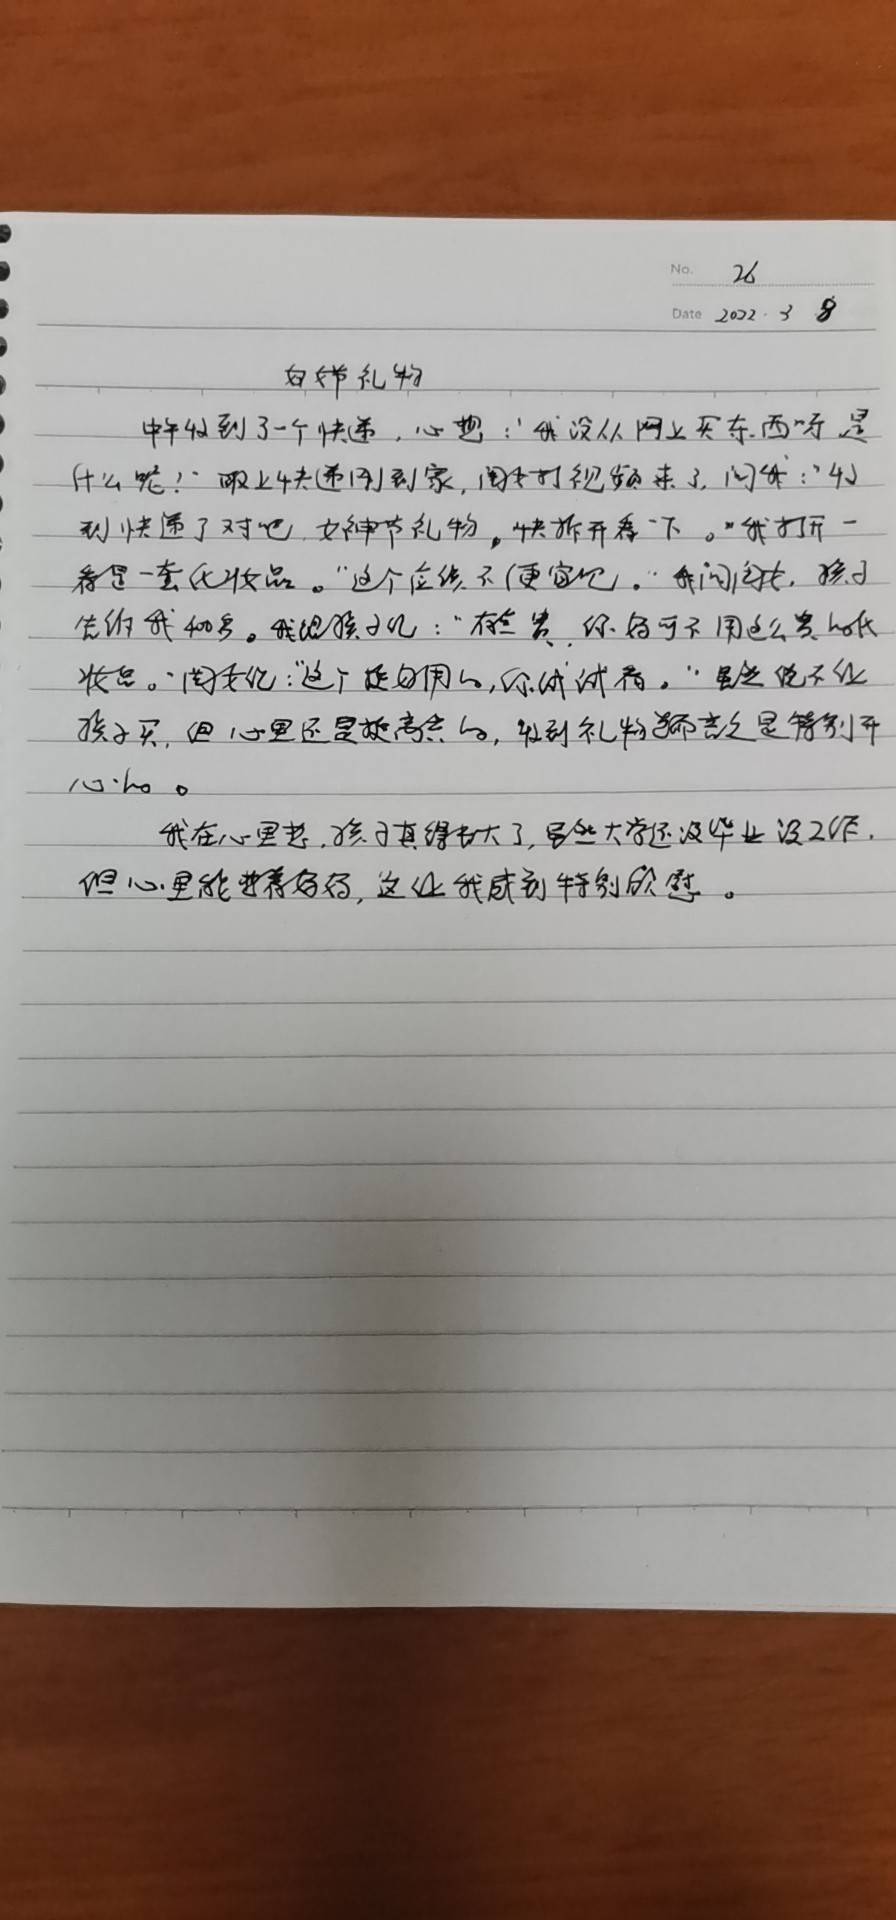 No. 26
Date 2022.3 8
妇女节礼物
中午收到了一个快递，心想：“我没从网上买东西呀是
什么呢？”取上快递刚到家，闺女打视频来了，问我：“收
到快递了对吧，女神节礼物，快拆开看一下。”我打开一
看是一套化妆品。“这个应该不便宜吧。”我问闺女，孩子
告诉我400多。我跟孩子说：“有些贵，你妈可不用这么贵的化
妆品。”闺女说：“这个挺好用的，你试试看。”虽然说不让
孩子买，但心里还是挺高兴的，收到礼物总而言之是特别开
心的。
我在心里想，孩子真得长大了，虽然大学还没毕业没工作，
但心里能想着妈妈，这让我感到特别欣慰。